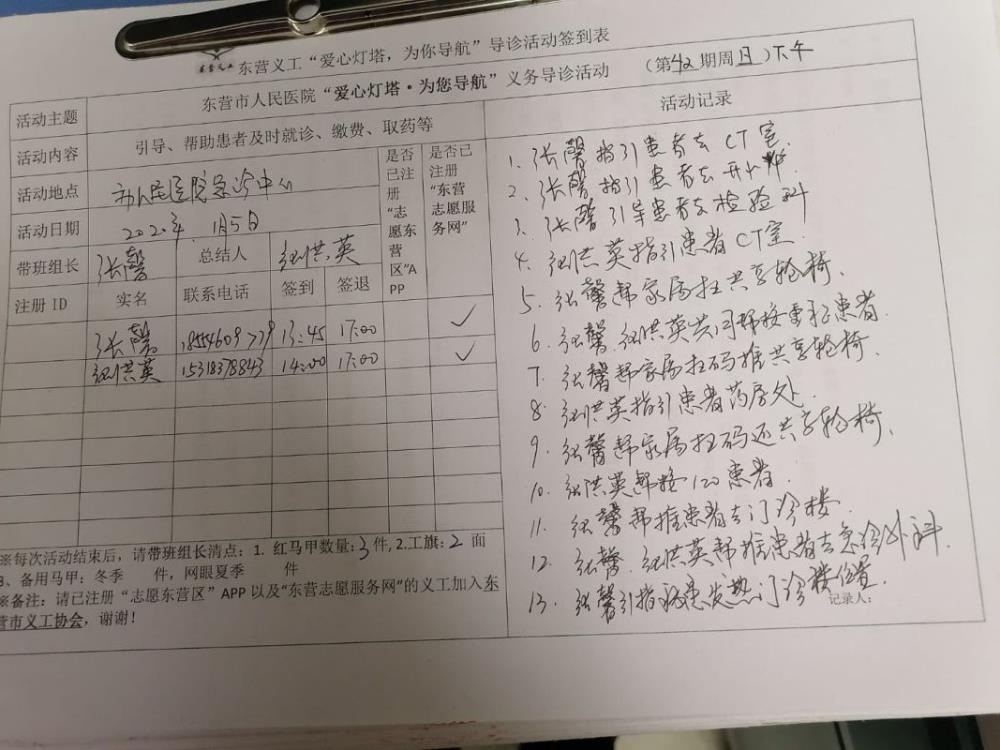 东营义工“爱心灯塔，为你导航”导诊活动签到表
东营义工
活动主题 东营市人民医院“爱心灯塔·为您导航”义务导诊活动 （第42期周日）下午
活动内容 引导、帮助患者及时就诊、缴费、取药等
活动地点 市人民医院急诊中心
活动日期 2020年.1月5日
带班组长 张馨 总结人 纪洪英
是否已注册“志愿东营区”APP
是否已注册“东营志愿服务网”
注册 ID 实名 联系电话 签到 签退
张馨 13:45 17:00 ✓
纪洪英 15318378843 14:00 17:00 ✓
※每次活动结束后，请带班组长清点：1. 红马甲数量：3件,2.工旗：2 面
3、备用马甲：冬季 件，网眼夏季 件
※备注：请已注册“志愿东营区”APP 以及“东营志愿服务网”的义工加入东
营市义工协会，谢谢！
活动记录
1. 张馨指引患者去CT室
2. 张馨指引患者去开水炉
3. 张馨引导患者去检验科
4. 纪洪英指引患者CT室.
5. 张馨帮家属扫共享轮椅.
6. 张馨.纪洪英共同帮按重患者.
7. 张馨帮家属扫码推共享轮椅.
8. 纪洪英指引患者药房处.
9. 张馨帮家属扫码还共享轮椅.
10. 纪洪英帮120患者.
11. 张馨帮推患者去门诊楼.
12. 张馨.纪洪英帮推患者去急诊外科.
13. 张馨引指患发热门诊楼位置.
记录人：